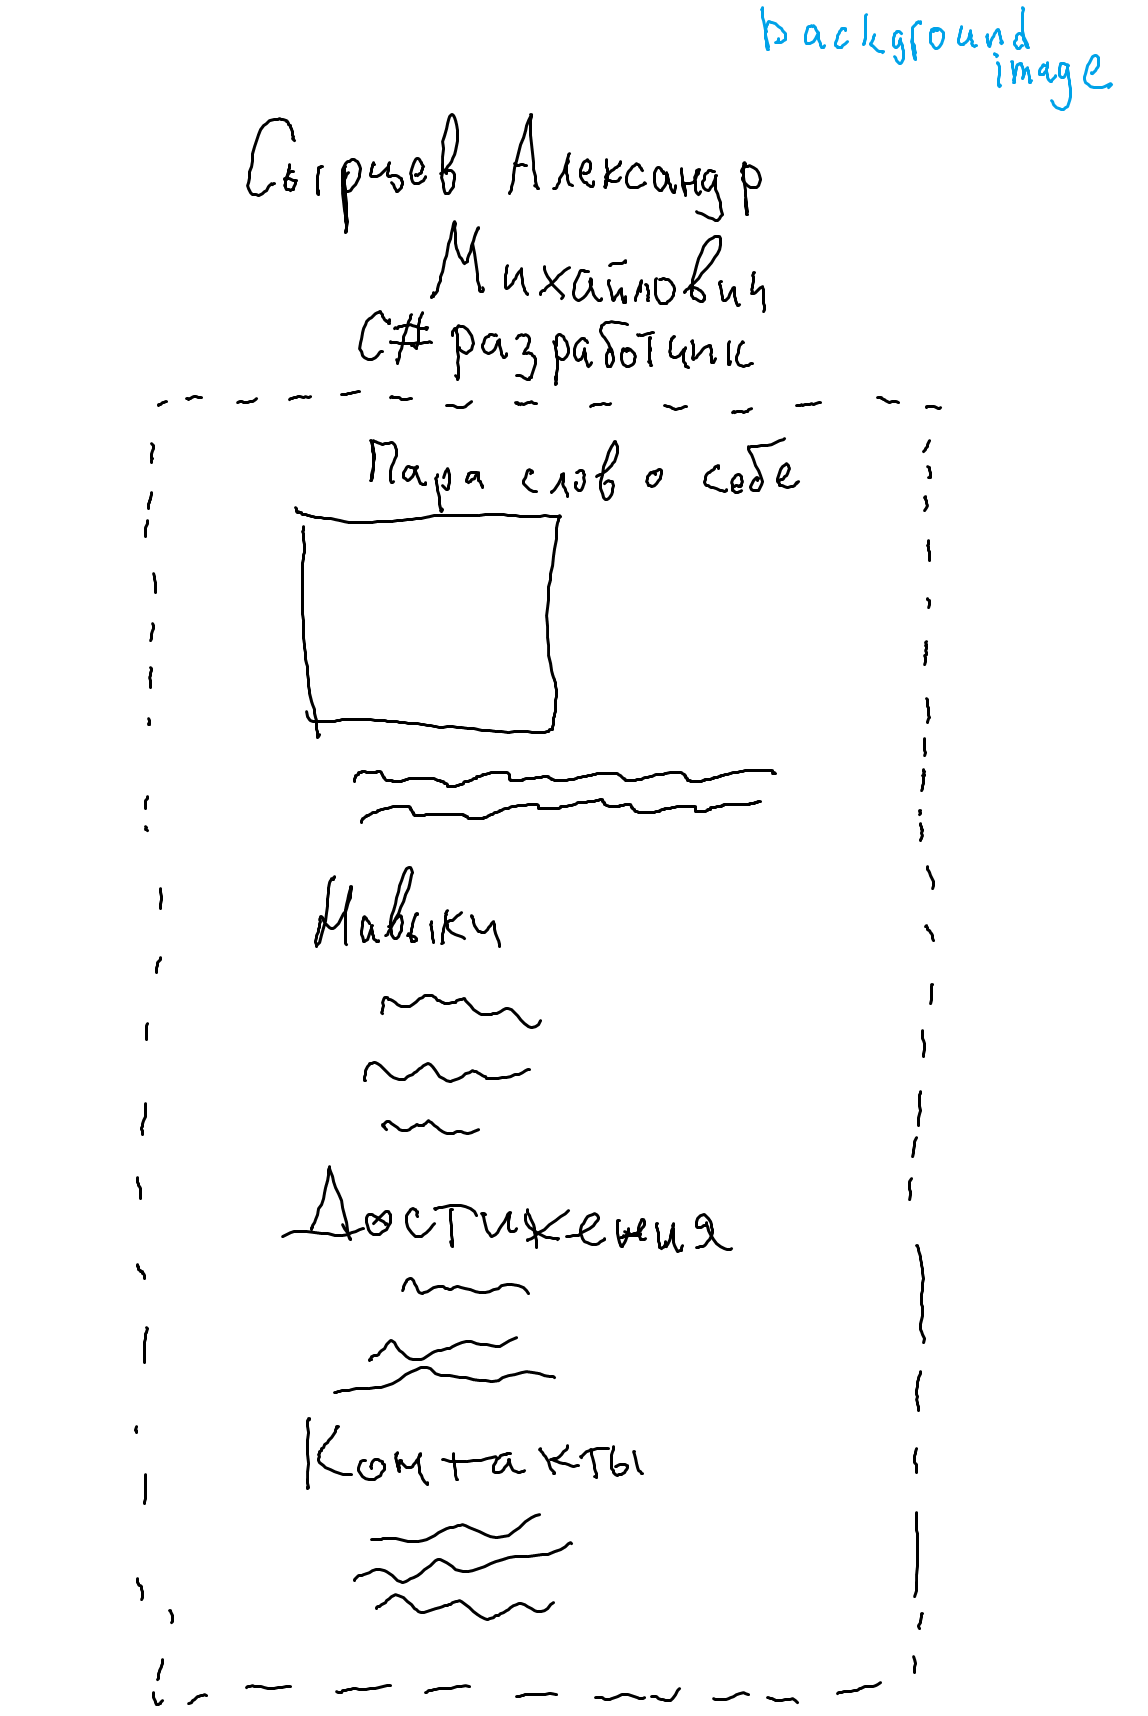 background
image
Сырцев Александр
Михайлович
C# разработчик
Пара слов о себе
Навыки
Достижения
Контакты